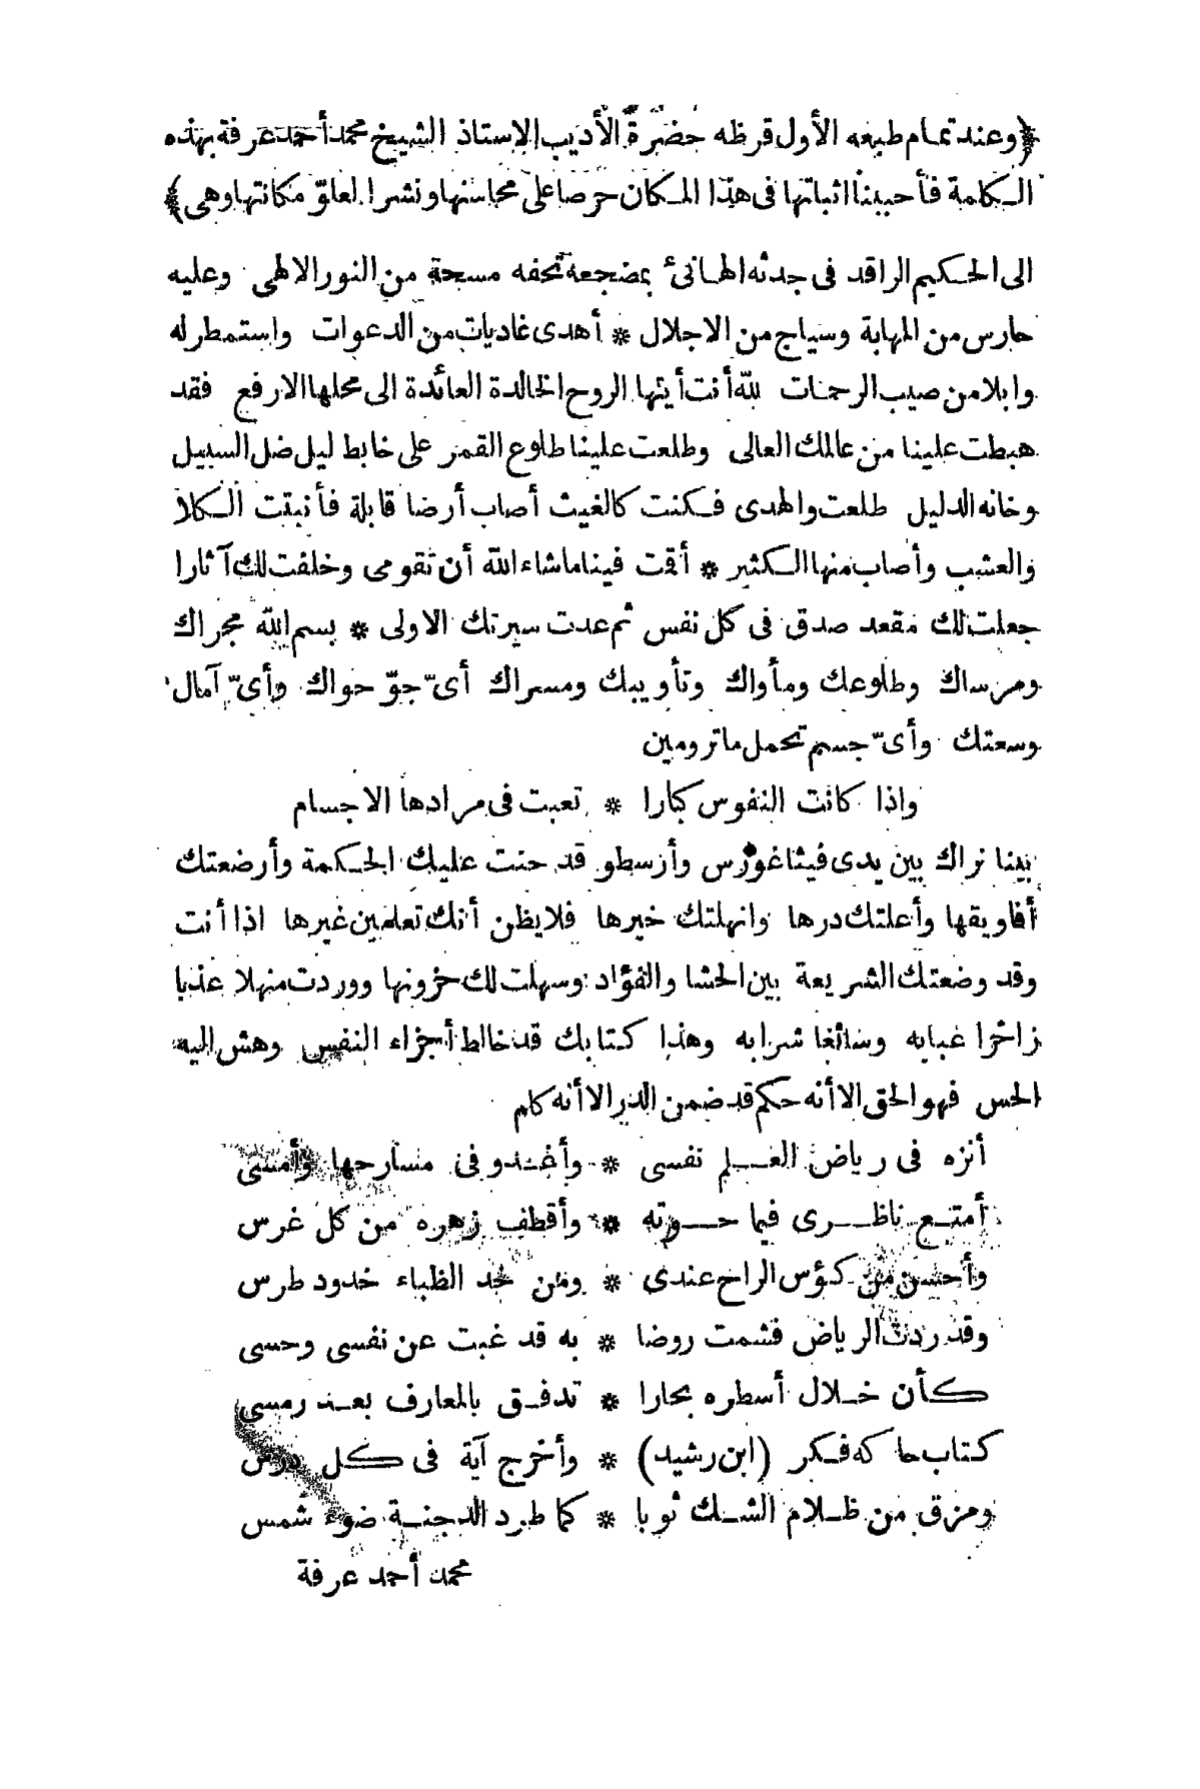 ﴿وعند تمام طبعه الأول قرظه حضرة الأديب الاستاذ الشيخ محمد أحمد عرفة بهذه
الكلمة فأحببنا اثباتها فى هذا المكان حرصا على محاسنها ونشرا لعلوّ مكانتها وهى﴾
الى الحكيم الراقد فى جدثه الهانئ بمضجعه تحفه مسحة من النور الالهى وعليه
حارس من المهابة وسياج من الاجلال * أهدى غاديات من الدعوات واستمطر له
وابلا من صيب الرحمات لله أنت أيتها الروح الخالدة العائدة الى محلها الارفع فقد
هبطت علينا من عالمك العالى وطلعت علينا طلوع القمر على خابط ليل ضل السبيل
وخانه الدليل طلعت والهدى فكنت كالغيث أصاب أرضا قابلة فأنبتت الكلأ
والعشب وأصاب منها الكثير * أقت فينا ما شاء الله أن تقومى وخلفت لك آثارا
جعلت لك مقعد صدق فى كل نفس ثم عدت سيرتك الاولى * بسم الله مجراك
ومرساك وطلوعك ومأواك وتأويبك ومسراك أىّ جوّ حواك وأىّ آمال
وسعتك وأىّ جسم تحمل ما ترومين
واذا كانت النفوس كبارا * تعبت فى مرادها الاجسام
بينا نراك بين يدى فيثاغورس وأرسطو قد حنت عليك الحكمة وأرضعتك
أفاويقها وأعلتك درها وانهلتك خيرها فلا يظن أنك تعلمين غيرها اذا أنت
وقد وضعتك الشريعة بين الحشا والفؤاد وسهلت لك حزونها ووردت منهلا عذبا
زاخرا عبابه وسائغا شرابه وهذا كتابك قد خالط أجزاء النفس وهش اليه
الحس فهو الحق الا أنه حكم قد ضمن الدر الا أنه كلم
أنزه فى رياض العلم نفسى * وأغدو فى مسارحها وأمسى
أمتع ناظرى فيما حوته * وأقطف زهره من كل غرس
وأحسن من كؤس الراح عندى * ومن خد الظباء خدود طرس
وقد ردت الرياض فشمت روضا * به قد غبت عن نفسى وحسى
كأن خلال أسطره بحارا * تدفق بالمعارف بعد رمسى
كتاب حاكه فكر (ابن رشيد) * وأخرج آية فى كل درس
ومزق من ظلام الشك ثوبا * كما طرد الدجنة ضوء شمس
محمد أحمد عرفة